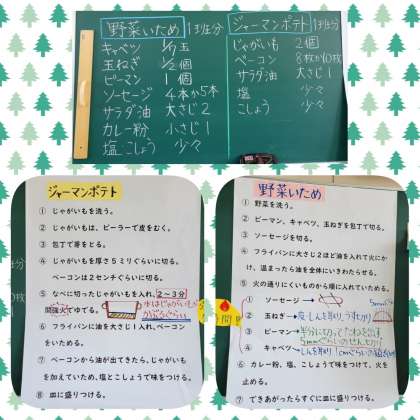 野菜いため 1班分
キャベツ
玉ねぎ 1/2個
ピーマン 1個
ソーセージ 4本か5本
サラダ油 大さじ2
カレー粉 小さじ1
塩、こしょう 少々
ジャーマンポテト 1班分
じゃがいも 2個
ベーコン 8枚か10枚
サラダ油 大さじ1
塩 少々
こしょう 少々
ジャーマンポテト
① じゃがいもを洗う。
② じゃがいもは、ピーラーで皮をむく。
③ 包丁で芽をとる。
④ じゃがいもを厚さ5ミリぐらいに切る。
ベーコンは2センチぐらいに切る。
⑤ なべに切ったじゃがいもを入れ、2~3分
間強火でゆでる。
⑥ フライパンに油を大さじ1入れ、ベーコン
をいためる。
⑦ ベーコンから油が出てきたら、じゃがいも
を加えていため、塩とこしょうで味をつける。
⑧ 皿に盛りつける。
野菜いため
① 野菜を洗う。
② ピーマン、キャベツ、玉ねぎを包丁で切る。
③ ソーセージを切る。
④ フライパンに大さじ2ほど油を入れて火にか
け、温まったら油を全体にいきわたらせる。
⑤ 火の通りにくいものから順に入れていためる。
1 ソーセージ
2 玉ねぎ→皮・しんを取り、うす切り
3 ピーマン→半分に切ってたねを出す
5mmぐらいのせん切り
4 キャベツ→しんを取り、1cmぐらいの
⑥ カレー粉、塩、こしょうで味をつけて、火を
止める。
⑦ できあがったらすぐに皿に盛りつける。